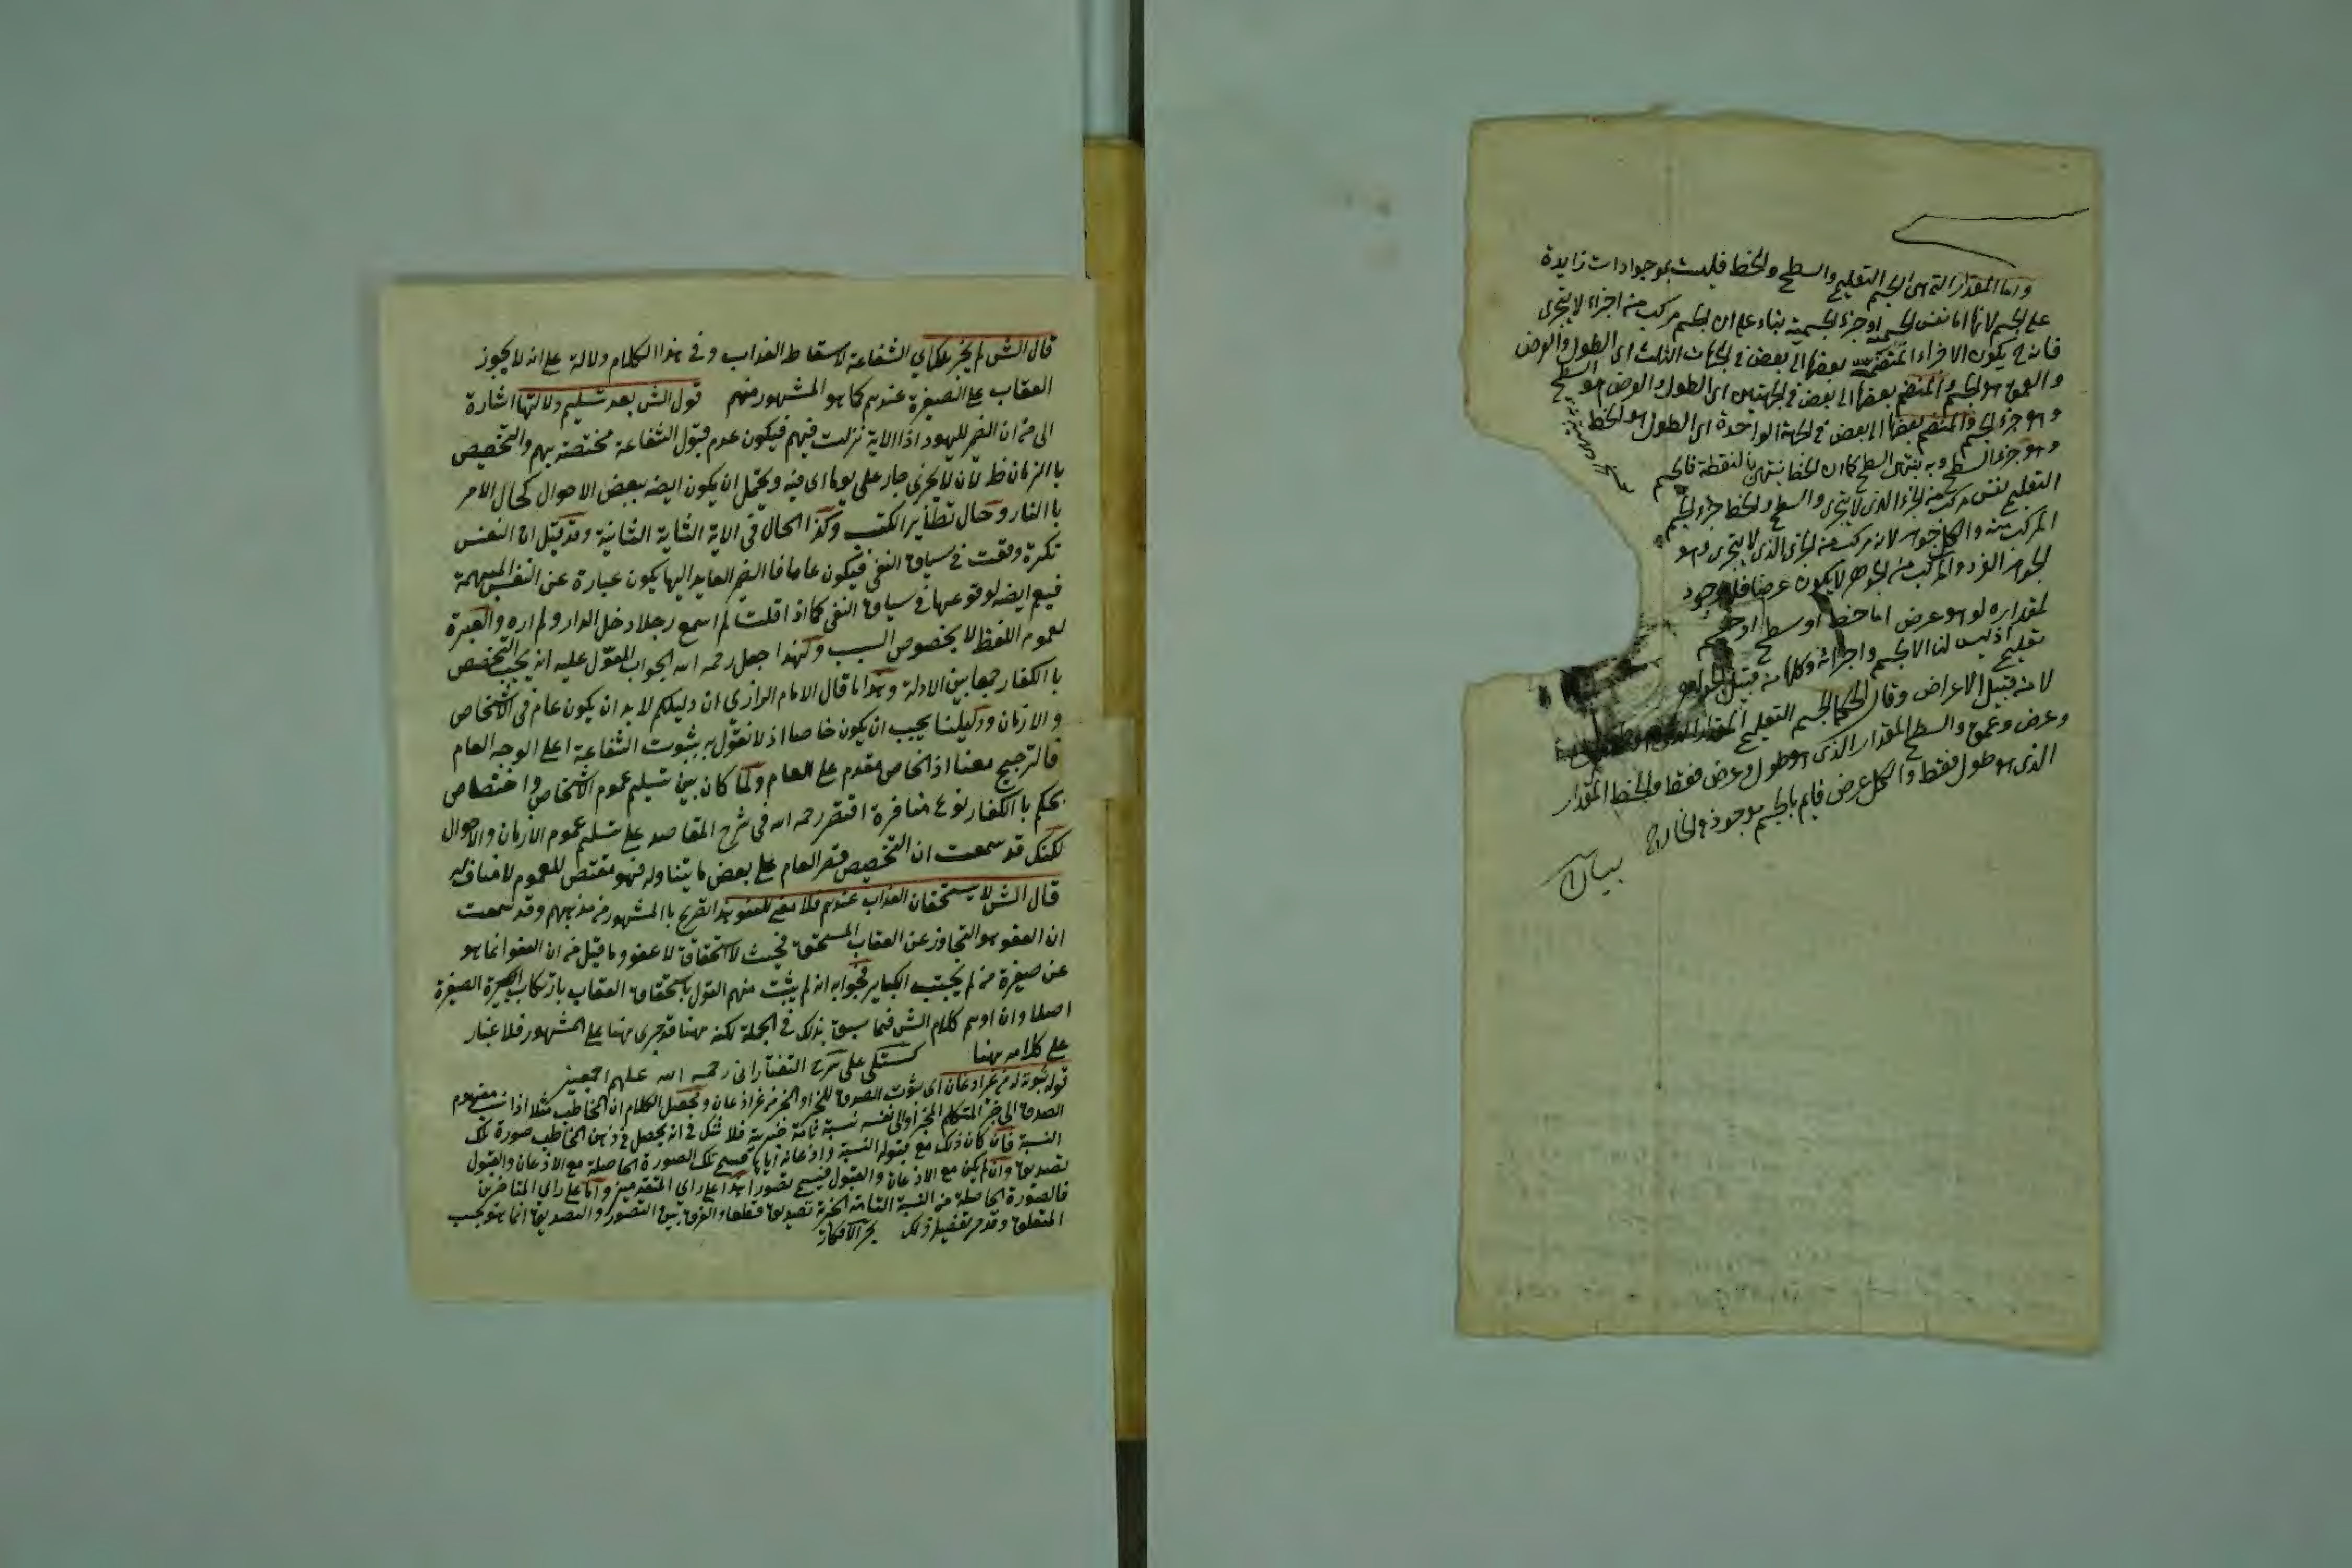 واما المقدار التى هى الجسم التعليمى والسطح والخط فليست بموجودات زايدة
على الجسم لانها اما نفس الجسم او جزء الجسمية بناء على ان الجسم مركب من اجزاء لا يتجزى
فانه ح يكون الاجزاء المنضمة بعضها الى بعض فى الجهات الثلث اى الطول والعرض
والعمق هو الجسم والمنضم بعضها الى بعض فى الجهتين اى الطول والعرض هو السطح
وهو جزء الجسم والمنضم بعضها الى بعض فى الجهة الواحدة اى الطول هو الخط
وهو جزء السطح وبه ينتهى السطح كما ان الخط ينتهى بالنقطة فالجسم
التعليمى نفس مركب من الجزء الذى لا يتجزى والسطح والخط جزء الجسم
المركب منه والكل جواهر لانه مركب من الجزء الذى لا يتجزى وهو
الجوهر الفرد والمركب من الجوهر لا يكون عرضا فلا وجود
لمقدار هو عرض اما خط او سطح او جسم
تعليمى اذ ليس لنا الا الجسم واجزائه وكلها من قبيل الجواهر
لا من قبيل الاعراض وقال الحكما الجسم التعليمى المقدار الذى
وعرض وعمق والسطح المقدار الذى هو طول وعرض فقط والخط المقدار
الذى هو طول فقط والكل عرض قايم بالجسم موجود فى الخارج
قال الش لم يجز علماى الشفاعة لاسقاط العذاب وفى هذا الكلام دلالة على انه لا يجوز
العقاب على الصغيرة عندهم كما هو المشهور منهم قول الش بعد تسليم دلالتها اشارة
الى من ان الضمير لليهود اذ الاية نزلت فيهم فيكون عدم قبول الشفاعة مختصة بهم والتخصيص
با الزمان ظ لان لا يجزى جار على يوما اى فيه ويحتمل ان يكون ايضه ببعض الاحوال كحال الامر
با النار وحال تطاير الكتب وكذا الحال فى الاية الثانية وقد قيل ان النفس
نكرة وقعت فى سياق النفى فيكون عاما فا الضمير العايد اليها يكون عبارة عن النفس المبهمة
فيعم ايضه لوقوعها فى سياق النفى كما اذا قلت لم اسمع رجلا دخل الدار ولم اره والعبرة
لعموم اللفظ لا بخصوص السبب ولهذا جعل رحمه الله الجواب المعول عليه انه يجب التخصيص
با الكفار جمعا بين الادلة وهذا ما قال الامام الرازى ان دليلكم لا بد ان يكون عام فى الاشخاص
والازمان ودليلنا يجب ان يكون خاصا اذ لا نقول به بثبوت الشفاعة على الوجه العام
فالترجيح معنا اذ الخاص مقدم على العام ولما كان بين تسليم عموم الاشخاص واختصاص
بحكم با الكفار نوع منافرة اقتصر رحمه الله فى شرح المقاصد على تسليم عموم الازمان والاحوال
لكنك قد سمعت ان التخصيص قصر العام على بعض ما يتناوله فهو مقتض للعموم لا مناف له
قال الش لا يستحقان العذاب عندهم فلا معنى للعفو هذا تصريح با المشهور من مذهبهم وقد سمعت
ان العفو هو التجاوز عن العقاب المستحق فحيث لا استحقاق لا عفو وما قيل من ان العفو انما هو
عن صغيرة من لم يجتنب الكباير فجوابه انه لم يثبت منهم القول باستحقاق العقاب بارتكاب الصغيرة
اصلا وان اوهم كلام الش فيما سبق بذلك فى الجملة لكنه ههنا قد جرى ههنا على المشهور فلا غبار
على كلامه ههنا كستلى على شرح التفتازانى رحمه الله عليهم اجمعين
قوله ثبوته له من غير اذعان اى ثبوت الصدق للخبر او المخبر من غير اذعان وتحصيل الكلام ان المخاطب مثلا اذا نسب مفهوم
الصدق الى خبر المتكلم المخبر او الى نفسه نسبة تامة خبرية فلا شك فى انه يحصل فى ذهن المخاطب صورة تلك
النسبة فان كان ذلك مع قبوله النسبة واذعانه اياها فسمى تلك الصورة الحاصلة مع الاذعان والقبول
تصديق وان لم يكن مع الاذعان والقبول فيسمى تصورا هذا على راى المتقدمين واما على راى المتاخرين
فالصورة الحاصلة من النسبة التامة الخبرية تصديق قطعا والفرق بين التصور والتصديق انما هو بحسب
المتعلق وقد مر تفصيل ذلك بحر الافكار